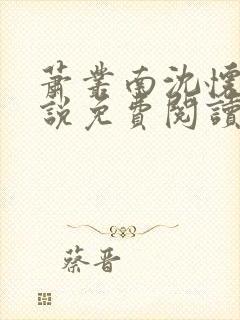 蕭業南沈懷
說免費閱讀
蔡晋